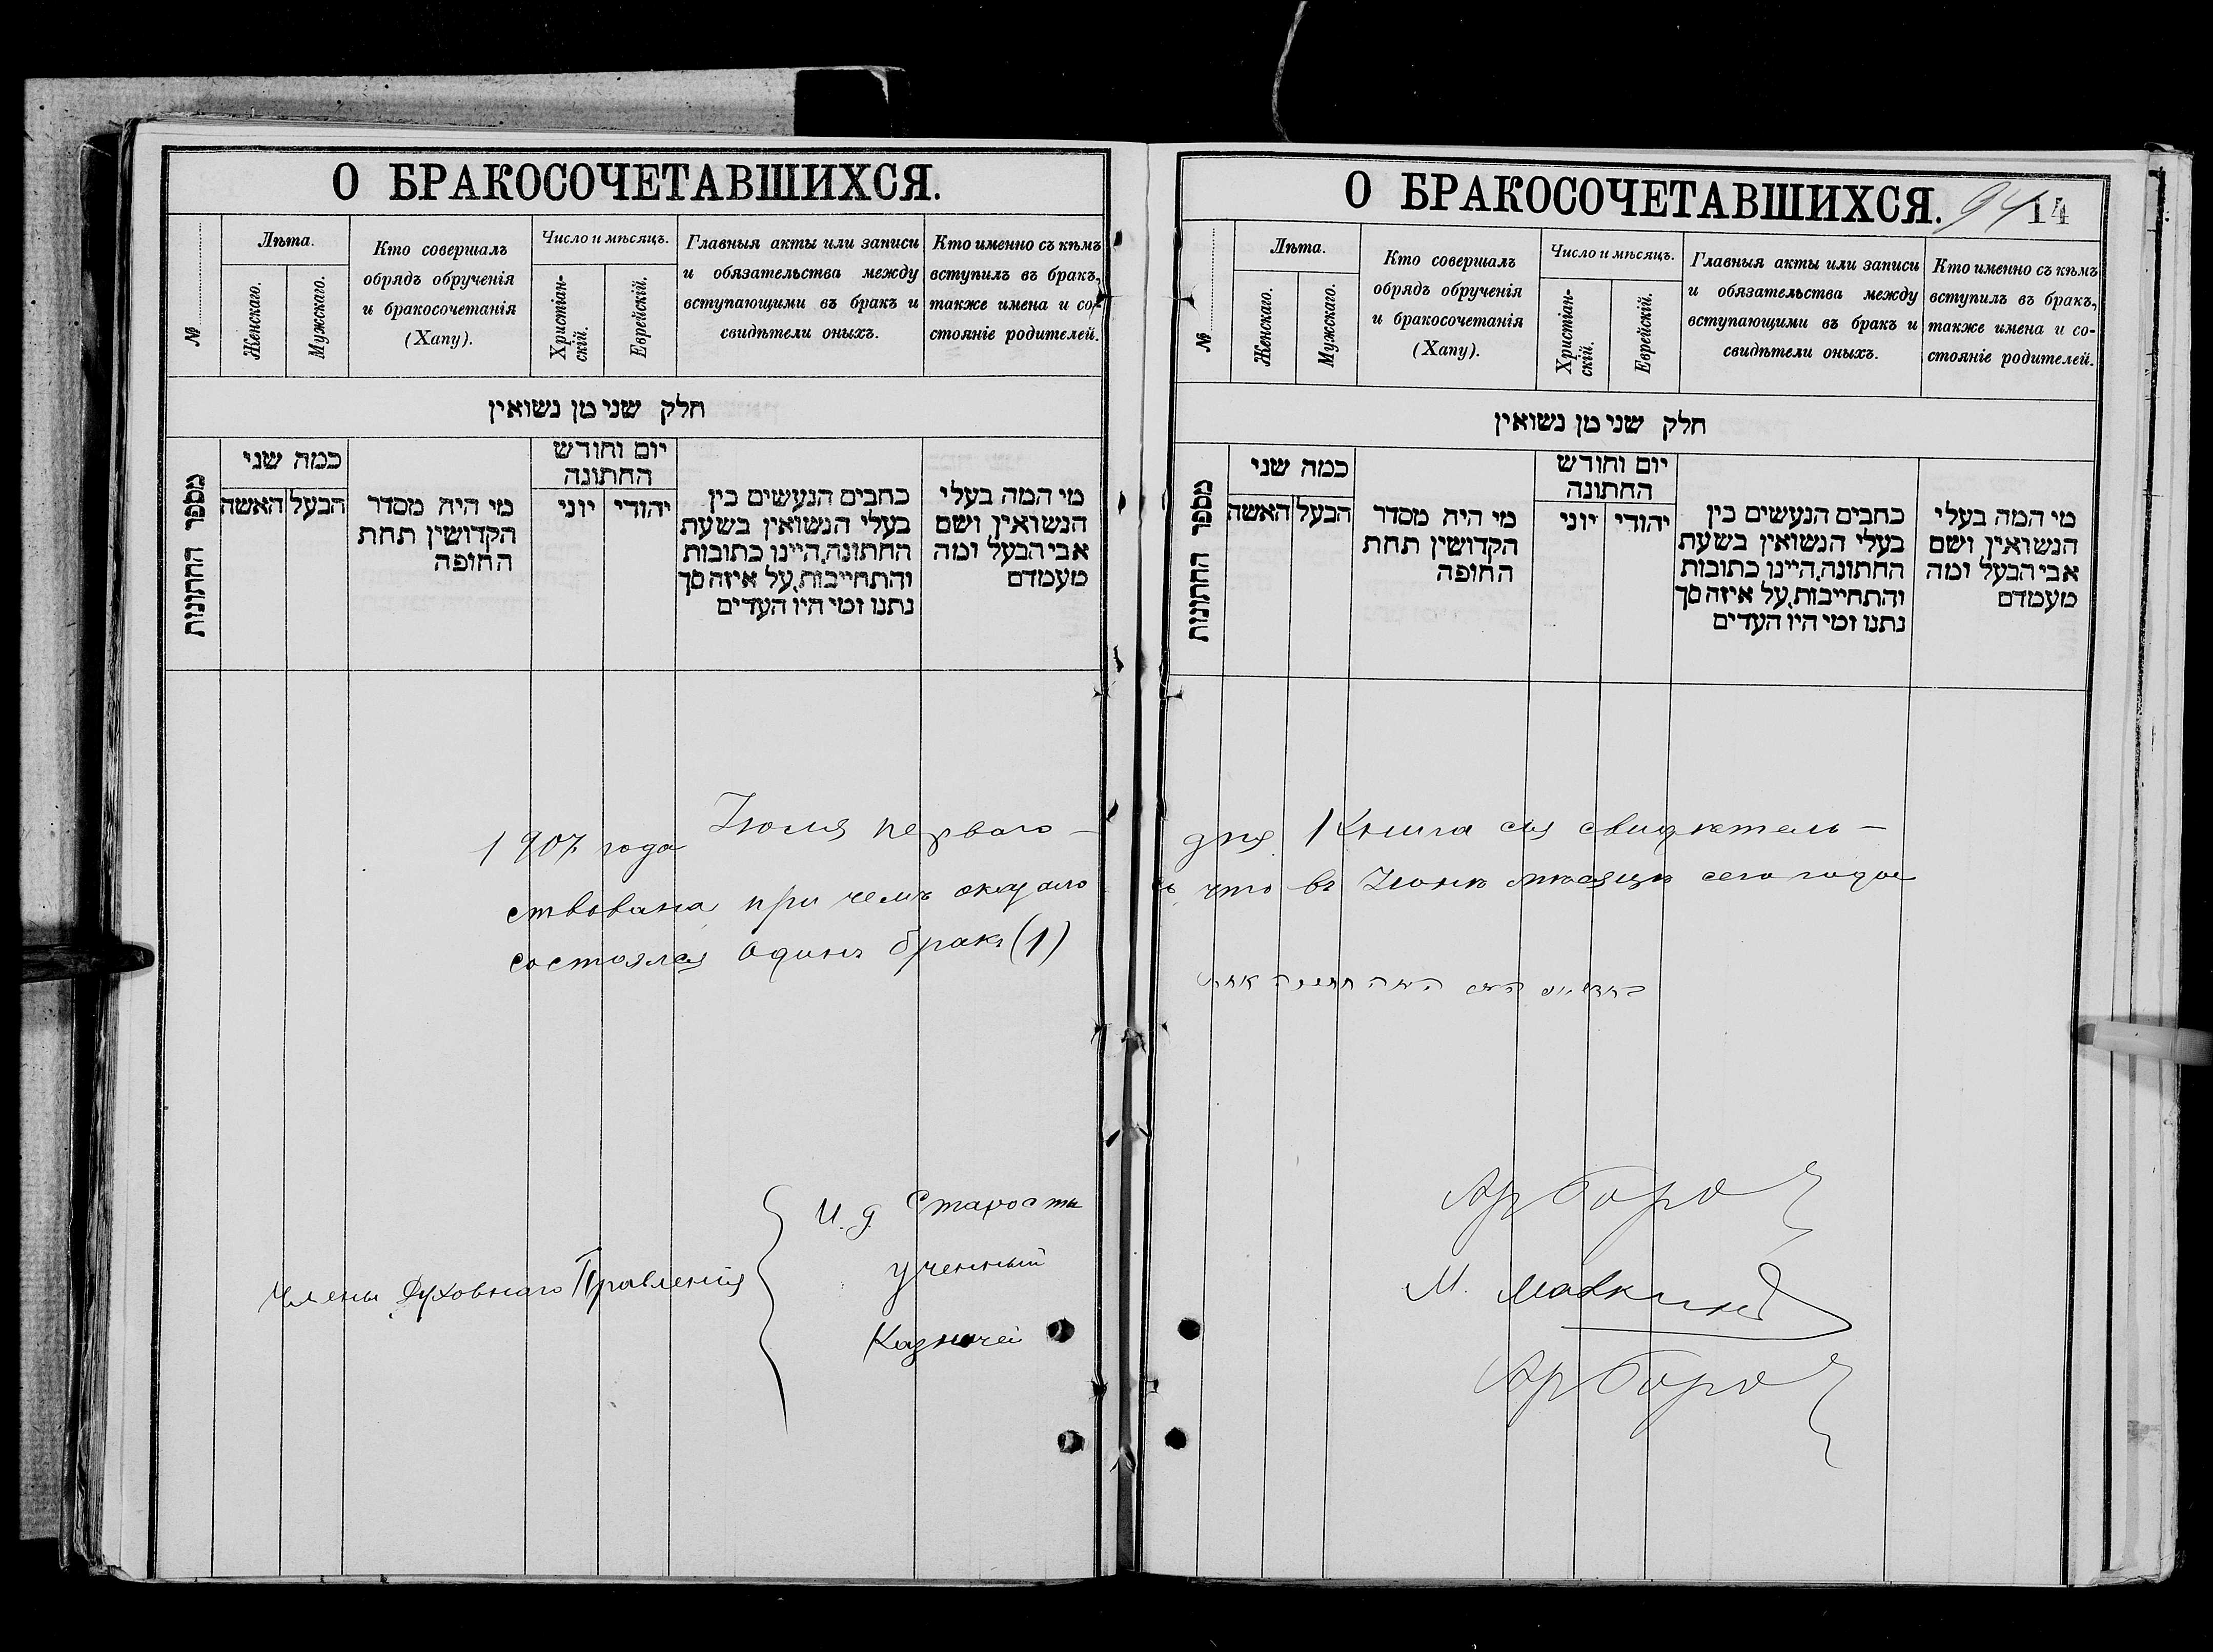 О БРАКОСОЧЕТАВШИХСЯ.
№
Лѣта.
Женскаго.
Мужскаго.
Кто совершалъ
обрядъ обрученія
и бракосочетанія
(Хапу).
Число и мѣсяцъ.
Христіан-
скій.
Еврейскій.
Главныя акты или записи
и обязательства между
вступающими въ бракъ и
свидѣтели оныхъ.
Кто именно съ кѣмъ
вступилъ въ бракъ,
также имена и со-
стояніе родителей.
חלק שני מן נשואין
מספר החתונות
כמה שני
האשה
הבעל
מי היה מסדר
הקדושין תחת
החופה
יום וחודש
החתונה
יוני
יהודי
כתבים הנעשים בין
בעלי הנשואין בשעת
החתונה, היינו כתובות
והתחייבות, על איזה סך
נתנו ומי היו העדים
מי המה בעלי
הנשואין ושם
אבי הבעל ומה
מעמדם
1907 года Іюля перваго –
ствована при чемъ оказало
состоялся одинъ бракъ (1)
Члены Духовнаго Правленія
И. д. Старосты
ученный
Казначей
О БРАКОСОЧЕТАВШИХСЯ.
94
14
№
Лѣта.
Женскаго.
Мужскаго.
Кто совершалъ
обрядъ обрученія
и бракосочетанія
(Хапу).
Число и мѣсяцъ.
Христіан-
скій.
Еврейскій.
Главныя акты или записи
и обязательства между
вступающими въ бракъ и
свидѣтели оныхъ.
Кто именно съ кѣмъ
вступилъ въ бракъ,
также имена и со-
стояніе родителей.
חלק שני מן נשואין
מספר החתונות
כמה שני
האשה
הבעל
מי היה מסדר
הקדושין תחת
החופה
יום וחודש
החתונה
יוני
יהודי
כתבים הנעשים בין
בעלי הנשואין בשעת
החתונה, היינו כתובות
והתחייבות, על איזה סך
נתנו ומי היו העדים
מי המה בעלי
הנשואין ושם
אבי הבעל ומה
מעמדם
дня Книга сія свидѣтель –
сь что въ Іюнѣ мѣсяцѣ сего года
היה חתונה אחת
М.